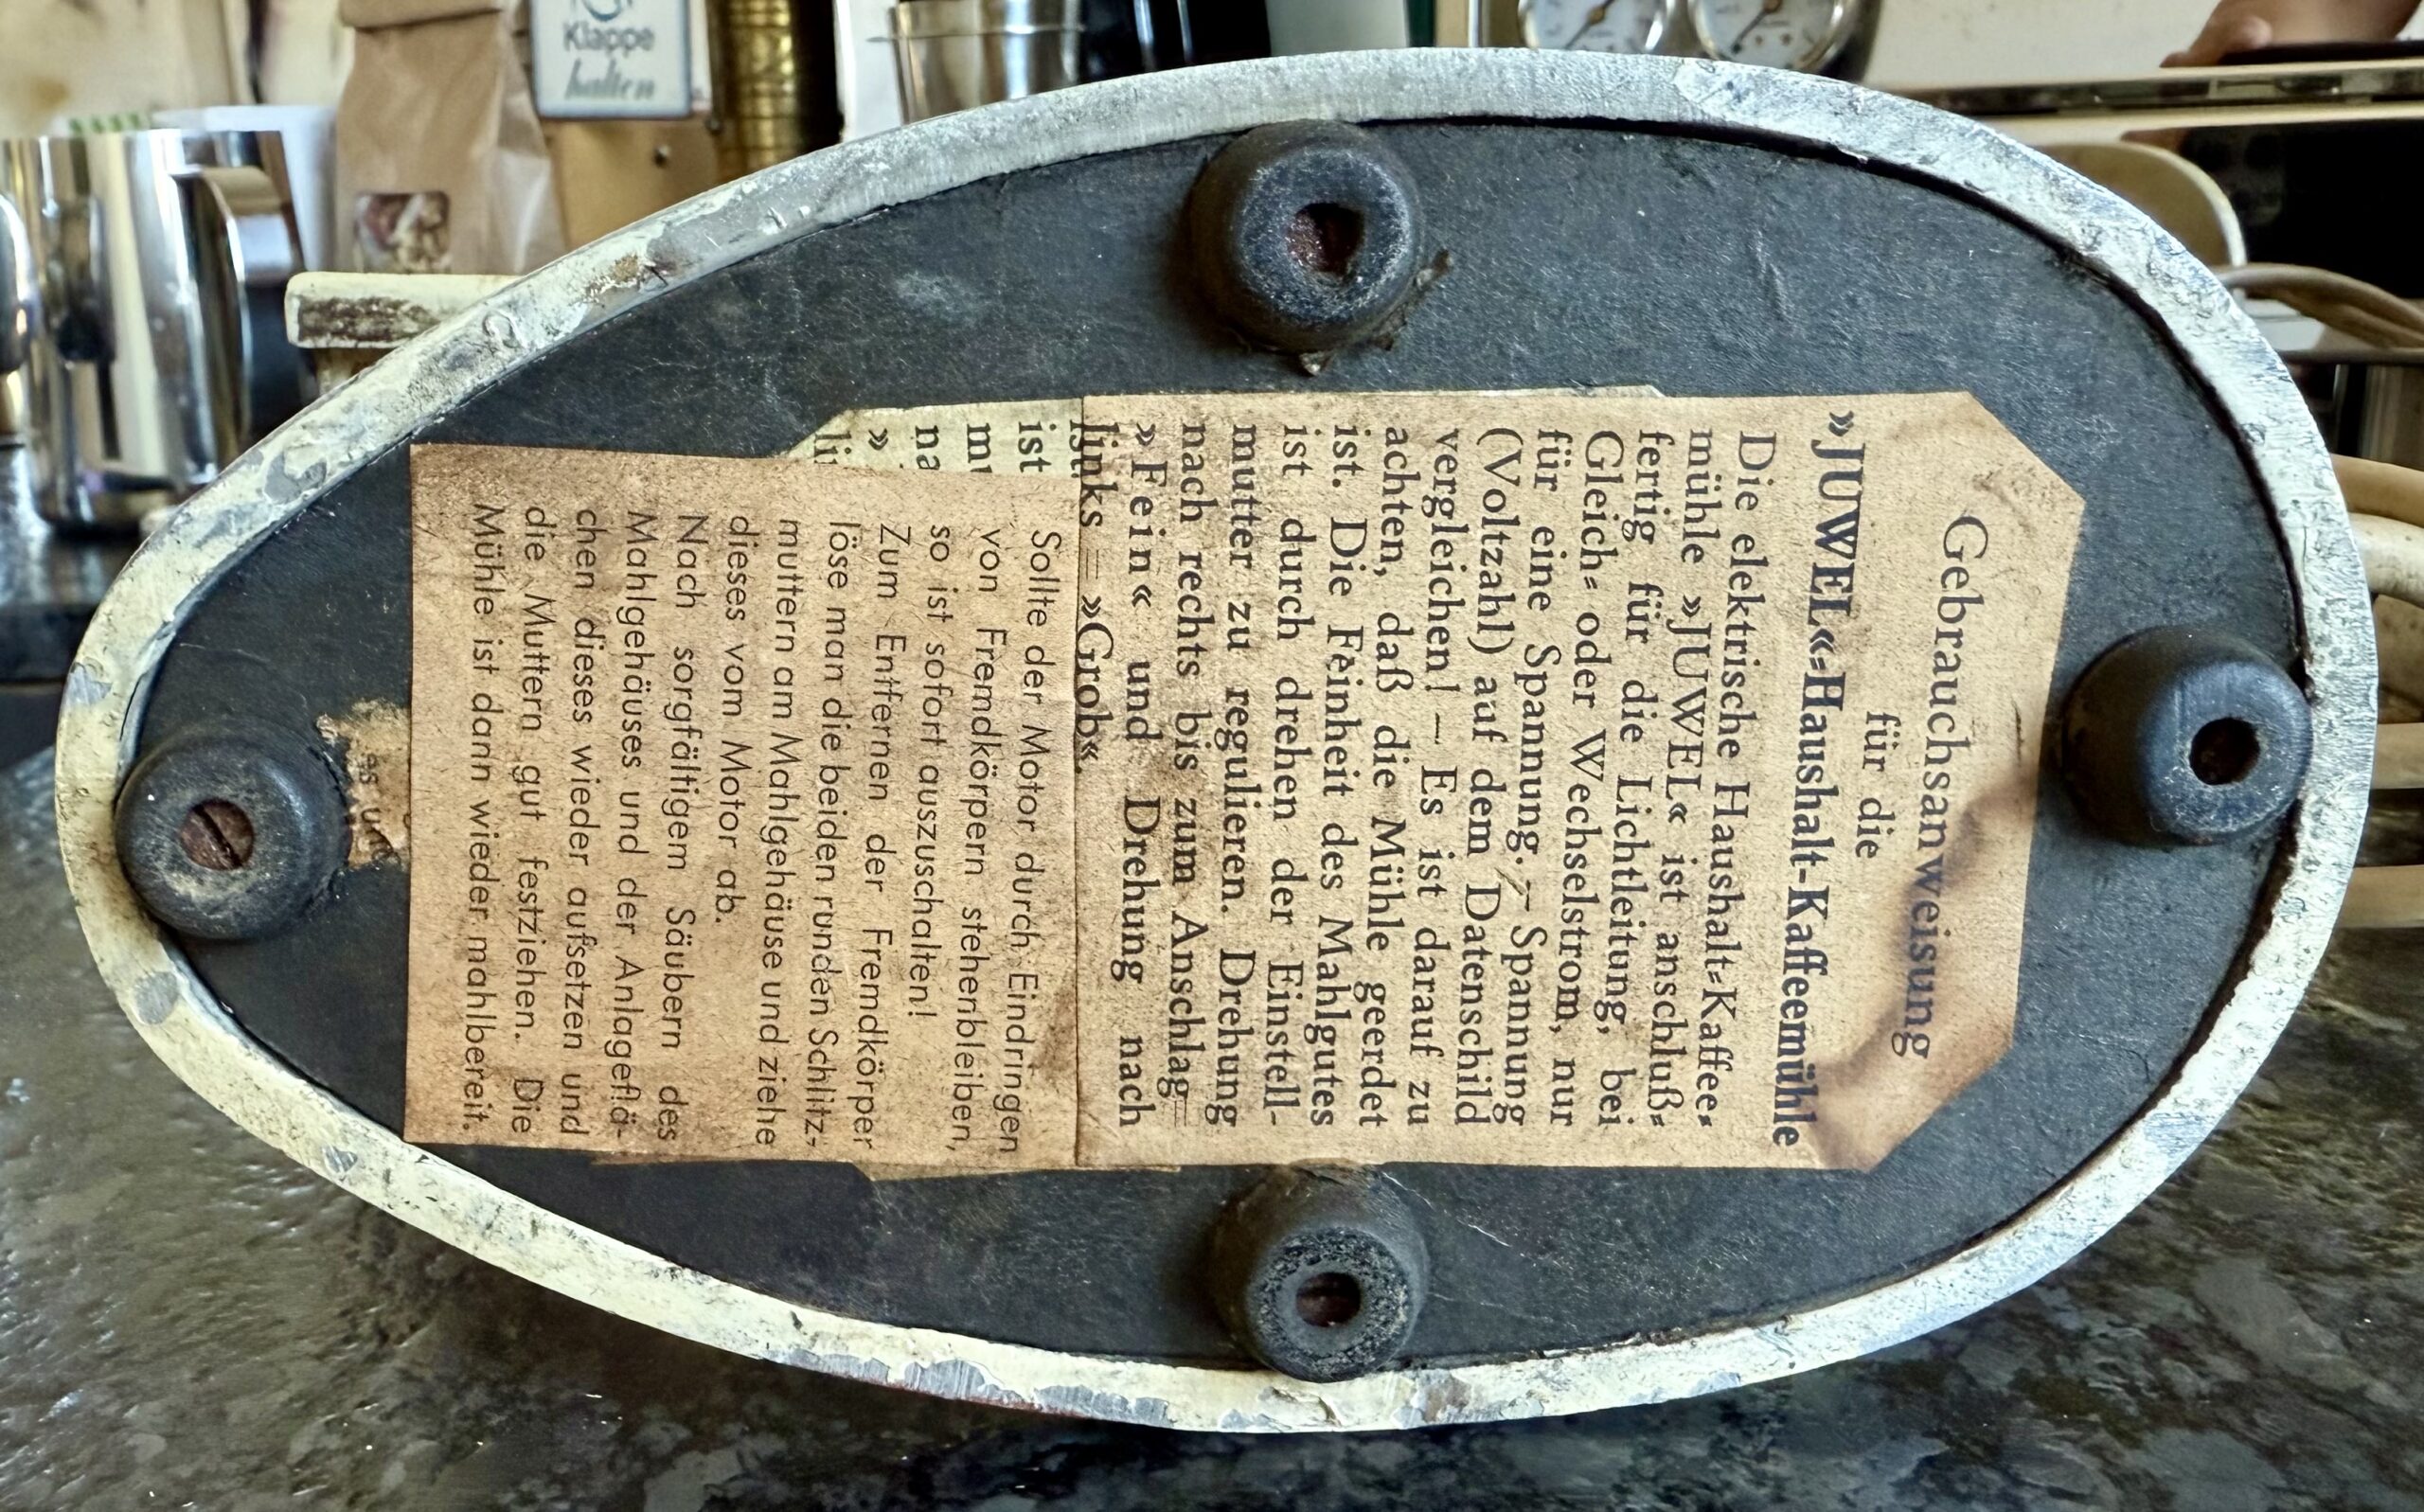 Klappe
halten
Gebrauchsanweisung
für die
»JUWEL«=Haushalt-Kaffeemühle
Die elektrische Haushalt=Kaffee=
mühle »JUWEL« ist anschluß=
fertig für die Lichtleitung, bei
Gleich= oder Wechselstrom, nur
für eine Spannung. — Spannung
(Voltzahl) auf dem Datenschild
vergleichen! — Es ist darauf zu
achten, daß die Mühle geerdet
ist. Die Feinheit des Mahlgutes
ist durch drehen der Einstell-
mutter zu regulieren. Drehung
nach rechts bis zum Anschlag =
»Fein« und Drehung nach
links = »Grob«.
ist
mu
na
»
li
Sollte der Motor durch Eindringen
von Fremdkörpern stehenbleiben,
so ist sofort auszuschalten!
Zum Entfernen der Fremdkörper
löse man die beiden runden Schlitz-
muttern am Mahlgehäuse und ziehe
dieses vom Motor ab.
Nach sorgfältigem Säubern des
Mahlgehäuses und der Anlageflä-
chen dieses wieder aufsetzen und
die Muttern gut festziehen. Die
Mühle ist dann wieder mahlbereit.